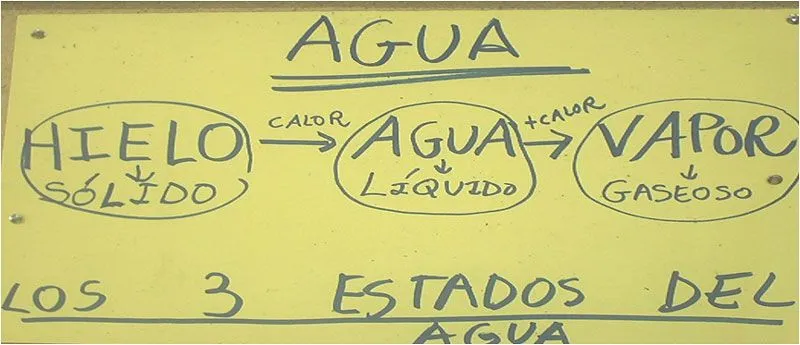 AGUA
CALOR +CALOR
HIELO → AGUA → VAPOR
↓ ↓ ↓
SÓLIDO LÍQUIDO GASEOSO
LOS 3 ESTADOS DEL
AGUA